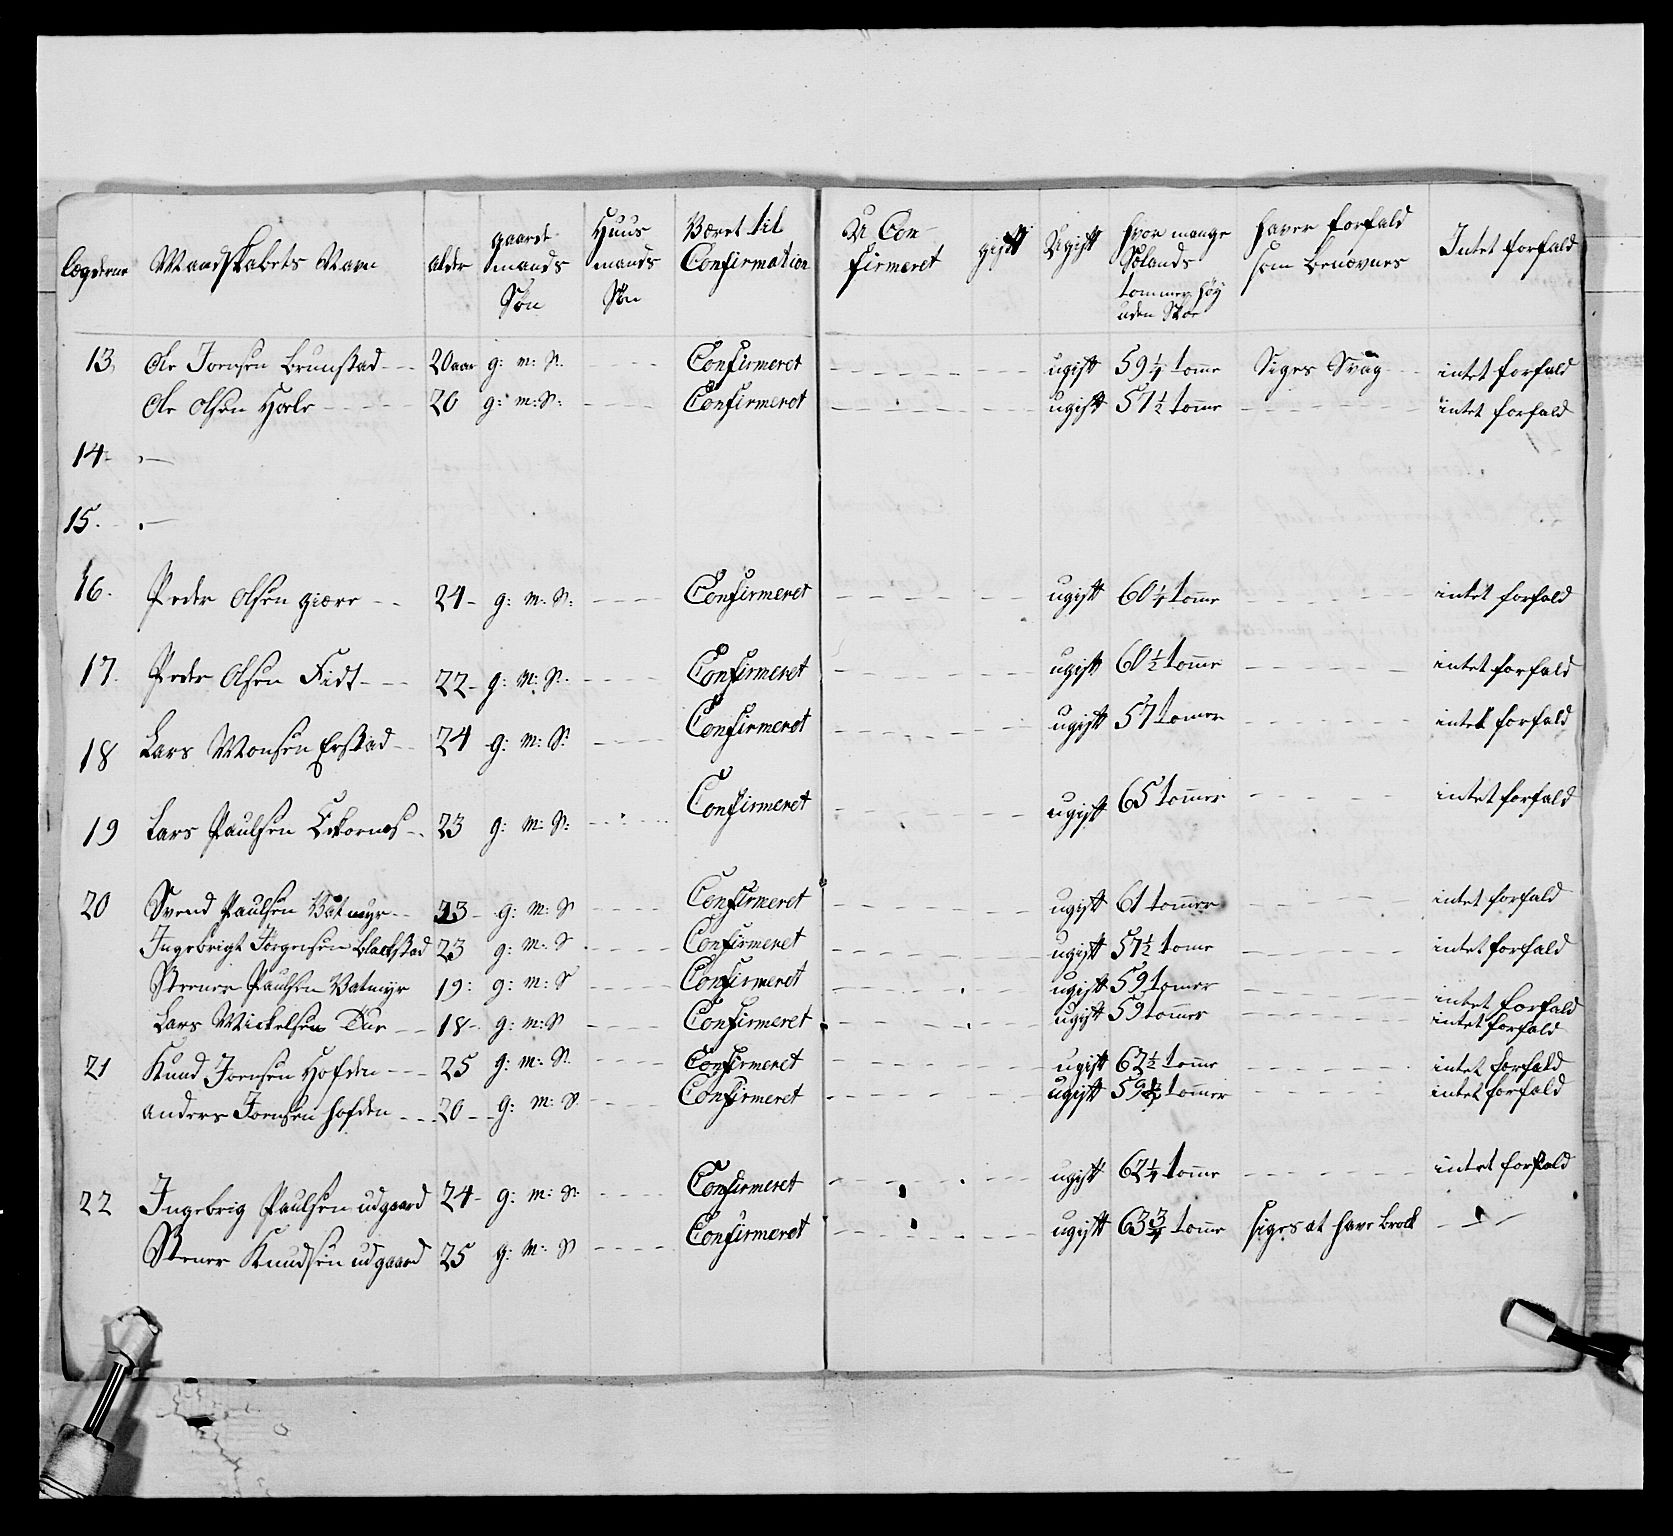 Lægderne Mandskabets Navn alder gaardmands Søn Huusmands Søn Været til Confirmation U Confirmeret gift Ugift hvor mange Siælands tommer høy uden Skoe haver forfald som benævnes Intet forfald
13, Ole Joensen Brunstad --- 20 aar g: m: S. ---- Confirmeret ------- ugift 59 1/4 tomme Siges Svag -- intet forfald
Ole Olsen Hole ---- 20 g: m: S: ---- Confirmeret ------- ugift 57 1/2 tomme ------- intet forfald
14: -
15. -
16. Peder Olsen giære -- 24 - g: m: S: ---- Confirmeret ------- ugift 60 1/4 tomme ------ intet forfald
17. Peder Olsen Fidt --- 22 - g: m: S. ---- Confirmeret ------- ugift 60 1/2 tomme ------ intet forfald
18 Lars Monsen Erstad -- 24 g: m: S: ---- Confirmeret ------- ugift 57 tomer ------ intet forfald
19 Lars Paulsen Eckornes -- 23 g: m: S: ---- Confirmeret ------- ugift 65 tommer ----- intet forfald
20 Svend Paulsen Vatmyr -- 23 - g: m: S ---- Confirmeret ------- ugift 61 tommer ----- intet forfald
Ingebrigt Jørgensen Blackstad 23 g: m: S ---- Confirmeret ------- ugift 57 1/2 tome ------ intet forfald
Steener Paulsen Vatmyr 19: g: m: S ---- Confirmeret ------- ugift 59 tomer ------ intet forfald
Lars Mickelsen -- 18 - g: m: S ---- Confirmeret ------- ugift 59 tommer ------ intet forfald
21 Knud Joensen Hofden --- 25 g: m: S. ---- Confirmeret ------- ugift 62 1/2 tomme ------ intet forfald
anders Joensen hofden --- 20 -- g: m: S ---- Confirmeret ------- ugift 59 tommer ------ intet forfald
22 Ingebrig Paulsen udgaard 24 - g: m: S. ---- Confirmeret ------- ugift 62 1/4 tomme ------ intet forfald
Stener Knudsen udgaard 25 g: m: S ---- Confirmeret ------- ugift 63 3/4 tomme siges at have brock ---